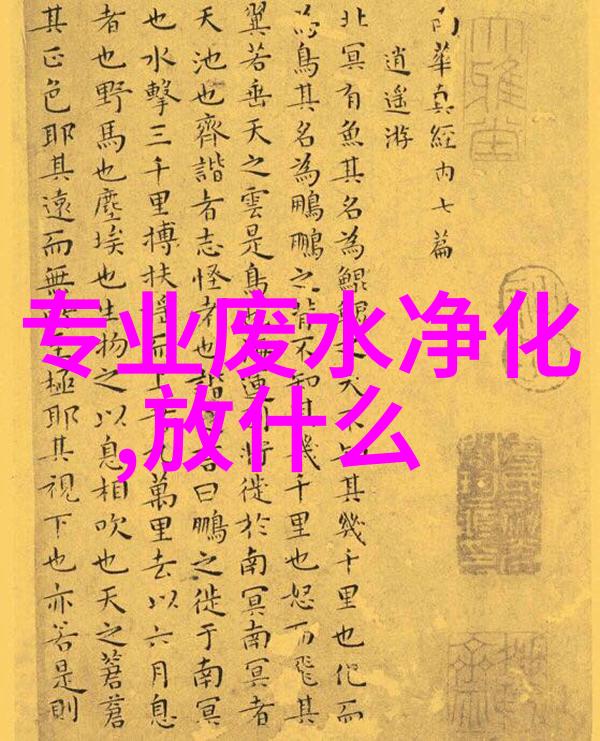 南華真經内七篇
逍遥游
北冥有魚其名為鯤大不其幾千里也化而
為鳥其名為鵬鵬之背不知其幾千里也怒而飛其
翼若垂天之雲是鳥也運將徙於南冥南冥者
天池也齊諧者志怪者也諧言曰鵬之徙于南冥
也水擊三千里搏扶摇而上九萬里去以六月息
者也野馬也塵埃也生物之以息相吹也天之蒼蒼
其正色耶其遠而無至極耶其視下也亦若是則
专业废水净化
,放什么